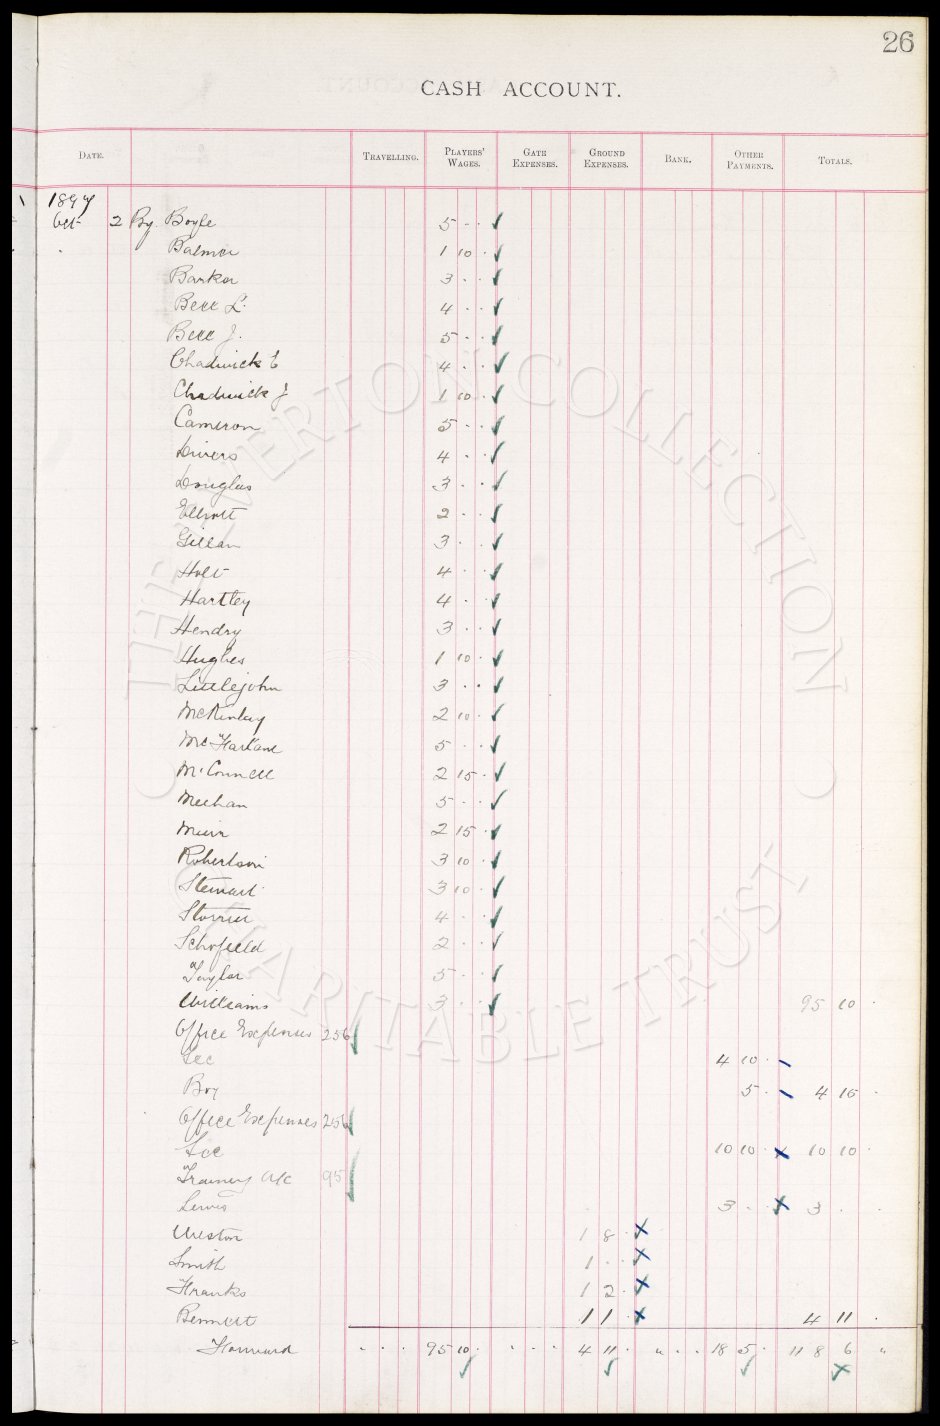 26
CASH ACCOUNT.
DATE. TRAVELLING. PLAYERS' WAGES. GATE EXPENSES. GROUND EXPENSES. BANK. OTHER PAYMENTS. TOTALS.
1897
Oct 2 By Boyle 5 . . ✓
Balmer 1 10 . ✓
Barker 3 . . ✓
Bell L. 4 . . ✓
Bell J. 5 . . ✓
Chadwick E 4 . . ✓
Chadwick J 1 10 . ✓
Cameron 5 . . ✓
Divers 4 . . ✓
Douglas 3 . . ✓
Elliott 2 . . ✓
Gillan 3 . . ✓
Holt 4 . . ✓
Hartley 4 . . ✓
Hendry 3 . . ✓
Hughes 1 10 . ✓
Littlejohn 3 . . ✓
McKinlay 2 10 . ✓
McFarlane 5 . . ✓
McConnell 2 15 . ✓
Meehan 5 . . ✓
Muir 2 15 . ✓
Robertson 3 10 . ✓
Stewart 3 10 . ✓
Storrier 4 . . ✓
Schofield 2 . . ✓
Taylor 5 . . ✓
Williams 3 . . ✓ 95 10 .
Office Expenses 256
Sec 4 10 .
Boy 5 . 4 15 .
Office Expenses 256
Sec 10 10 . 10 10 .
Training a/c 95
Lewis 3 . . 3 . .
Weston 1 8 .
Smith 1 . .
Franks 1 2 .
Bennett 1 1 . 4 11 .
Forward . . . 95 10 . . . . 4 11 . " . . 18 5 . 118 6 "
THE EVERTON COLLECTION CHARITABLE TRUST